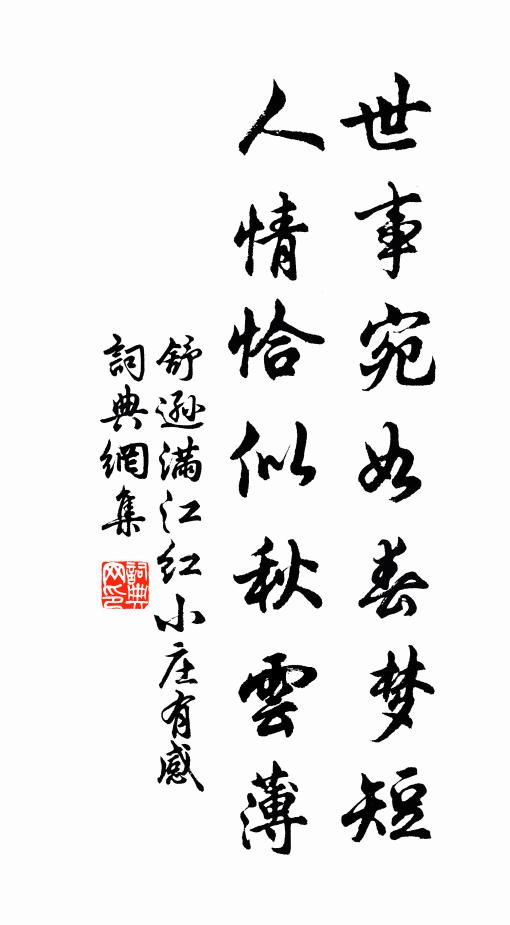 世事宛如春梦短
人情恰似秋雲薄
舒遜满江红小庄有感
詞典網集
詞典网印